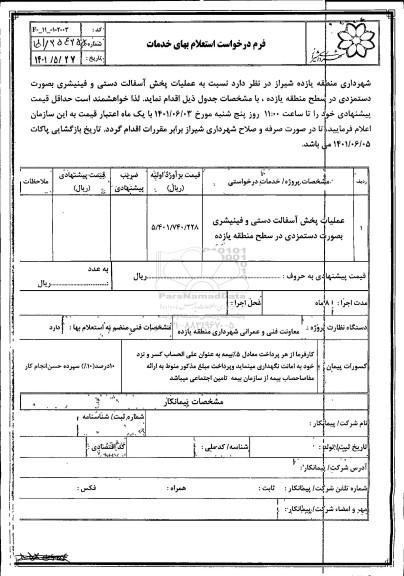 فرم درخواست استعلام بهای خدمات
کد : ۲۰۰۲-۰۱-۱۱-۴۰
شماره:
تاریخ: ۱۴۰۱/۵/۲۷
شهرداری منطقه یازده شیراز در نظر دارد نسبت به عملیات پخش آسفالت دستی و فینیشری بصورت
دستمزدی در سطح منطقه یازده ، با مشخصات جدول ذیل اقدام نماید. لذا خواهشمند است حداقل قیمت
پیشنهادی خود را تا ساعت ۱۱:۰۰ روز پنج شنبه مورخ ۱۴۰۱/۰۶/۰۳ با یک ماه اعتبار قیمت به این سازمان
اعلام فرمایید، تا در صورت صرفه و صلاح شهرداری شیراز برابر مقررات اقدام گردد. تاریخ بازگشایی پاکات
۱۴۰۱/۰۶/۰۵ می باشد.
ردیف مشخصات پروژه/ خدمات درخواستی قیمت برآورد اولیه (ریال) ضریب پیشنهادی قیمت پیشنهادی (ریال) ملاحظات
۱ عملیات پخش آسفالت دستی و فینیشری بصورت دستمزدی در سطح منطقه یازده ۵/۴۰۱/۷۴۰/۲۲۸
قیمت پیشنهادی به حروف : ریال به عدد : ریال
مدت اجرا : ۸ ماه محل اجرا :
دستگاه نظارت پروژه : معاونت فنی و عمرانی شهرداری منطقه یازده مشخصات فنی منضم به استعلام بها : دارد
کسورات پیمان : کارفرما از هر پرداخت معادل ۵٪ بیمه به عنوان علی الحساب کسر و نزد
خود به امانت نگهداری مینماید وپرداخت مبلغ مذکور منوط به ارائه
مفاصاحساب بیمه از سازمان بیمه تامین اجتماعی میباشد
۱۰درصد(۱۰٪) سپرده حسن انجام کار
مشخصات پیمانکار
نام شرکت/ پیمانکار : شماره ثبت/ شناسنامه :
تاریخ ثبت/ تولد : شناسه/ کدملی : کد اقتصادی :
آدرس شرکت/ پیمانکار:
شماره تلفن شرکت/ پیمانکار : ثابت : همراه : فکس :
مهر و امضاء شرکت/ پیمانکار:
ParsNamadData